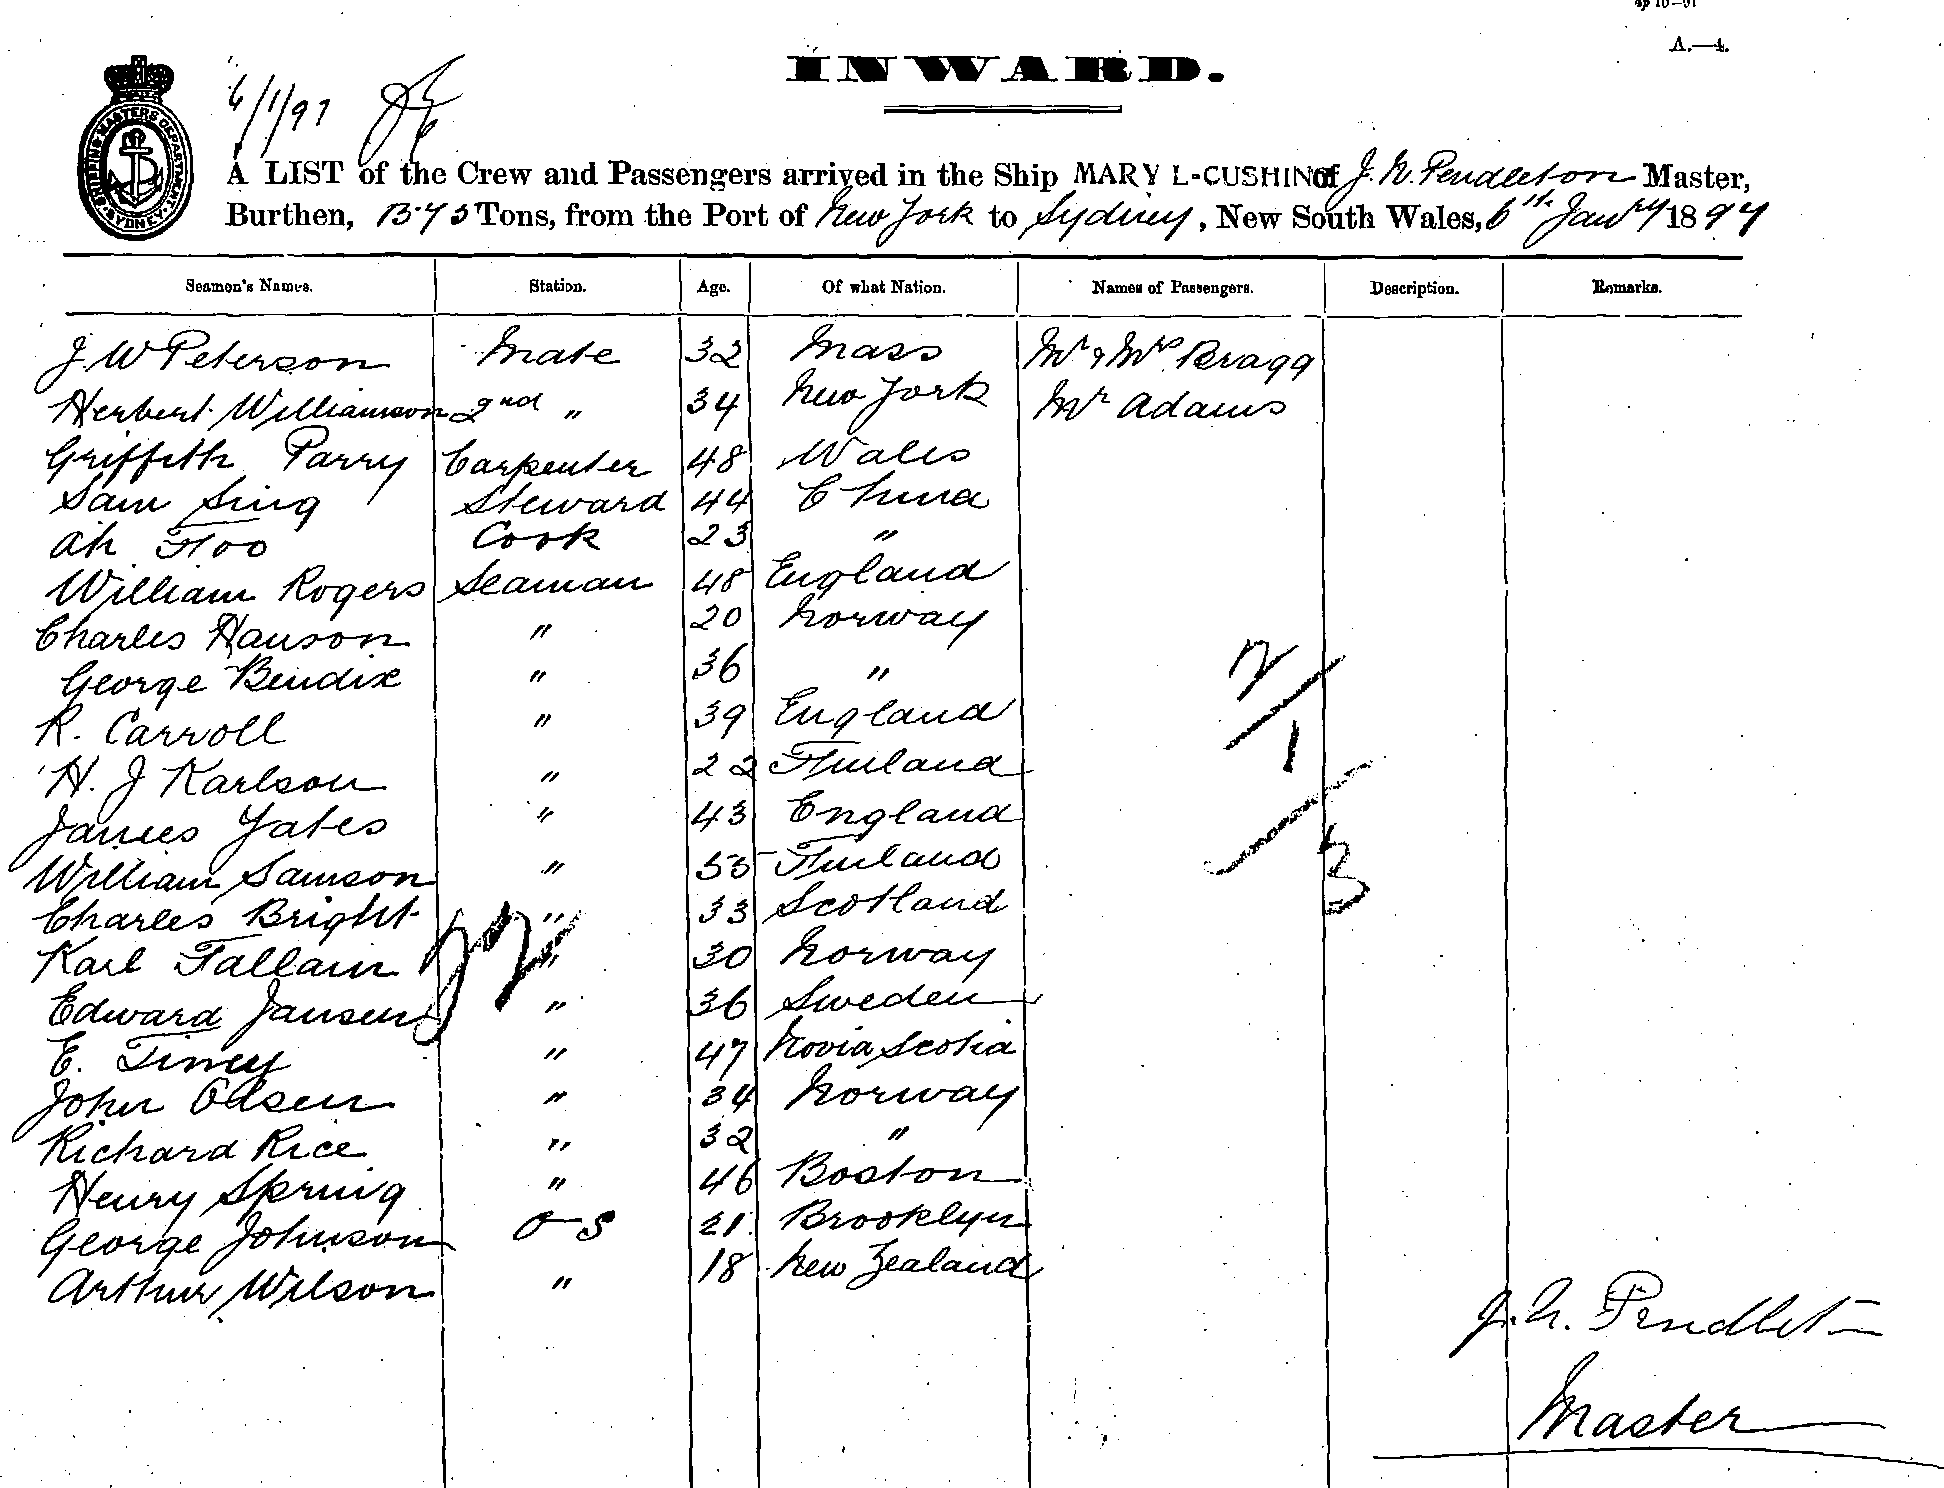 A.—4.
INWARD.
6/1/97
SHIPPING MASTERS DEPARTMENT SYDNEY
A LIST of the Crew and Passengers arrived in the Ship MARY L-CUSHING of J. N. Pendleton Master,
Burthen, 1575 Tons, from the Port of New York to Sydney, New South Wales, 6th Janry 1897
Seamen's Names. Station. Age. Of what Nation. Names of Passengers. Description. Remarks.
J. W Peterson Mate 32 Mass Mr & Mrs Bragg
Herbert Williamson 2nd " 34 New York Mr Adams
Griffith Parry Carpenter 48 Wales
Sam Sing Steward 44 China
Ah Foo Cook 23 "
William Rogers Seaman 48 England
Charles Hanson " 20 Norway
George Bendix " 36 "
R. Carroll " 39 England
H. J Karlson " 22 Finland
James Yates " 43 England
William Samson " 55 Finland
Charles Bright " 33 Scotland
Karl Fallain " 30 Norway
Edward Jansen " 36 Sweden
E. Tiney " 47 Novia Scotia
John Olsen " 34 Norway
Richard Rice " 32 "
Henry Spring " 46 Boston
George Johnson O S 21 Brooklyn
Arthur Wilson " 18 New Zealand
22
2/1
3
J. N. Pendleton
Master